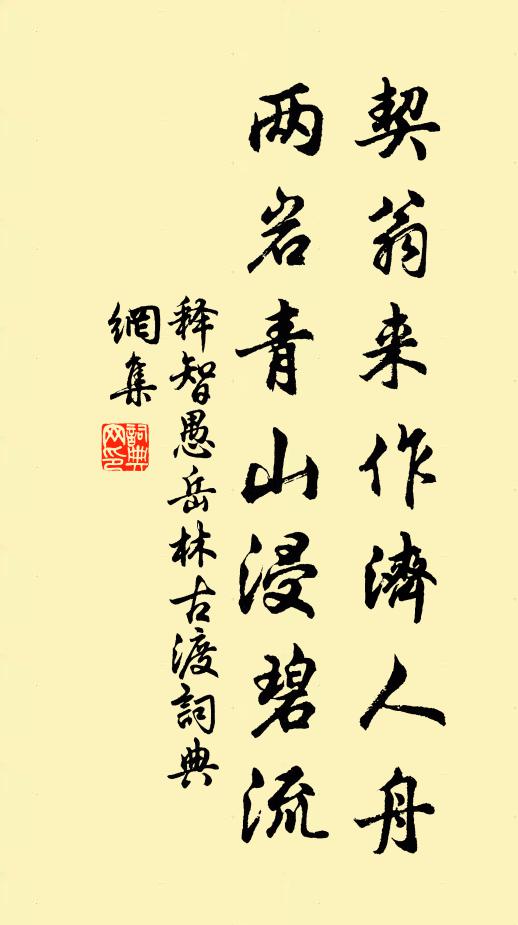 契翁来作濟人舟
两岩青山浸碧流
释智愚岳林古渡詞典
網集
詞典
网印